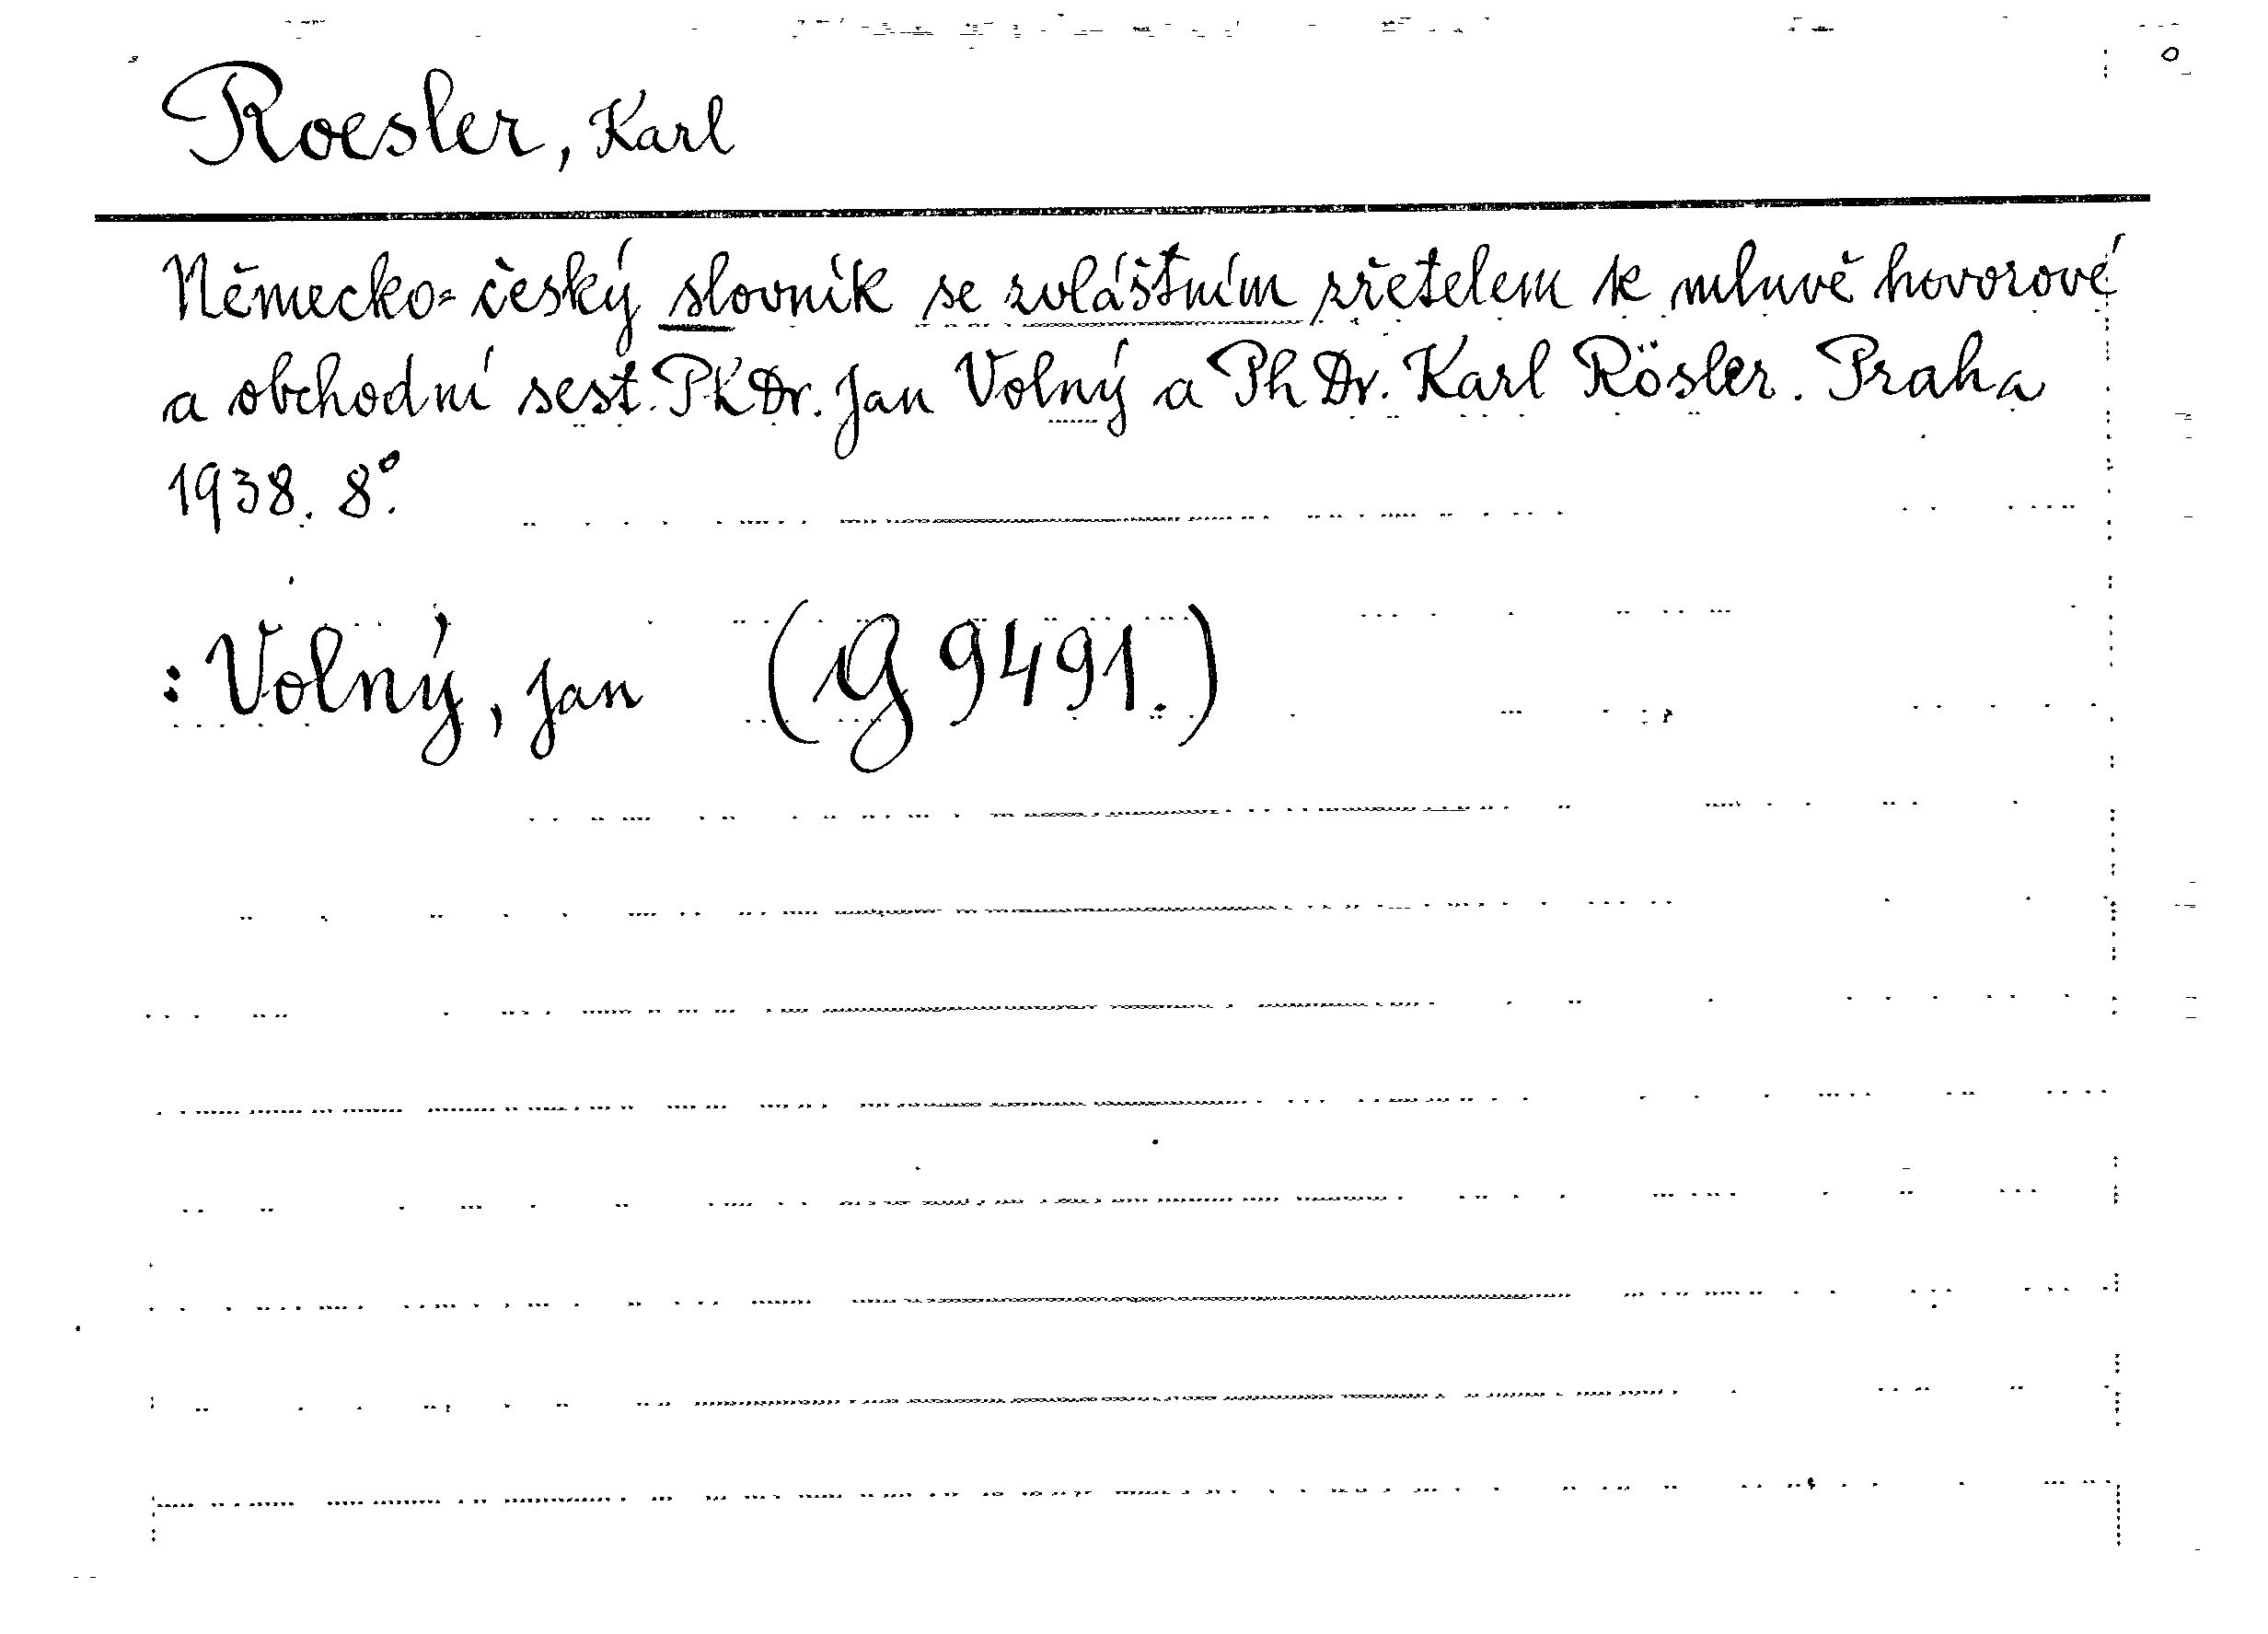 Roesler, Karl
Německo-český slovník se zvláštním zřetelem k mluvě hovorové
a obchodní sest. PhDr. Jan Volný a PhDr. Karl Rösler. Praha
1938. 8°.
: Volný, Jan (G 9491.)